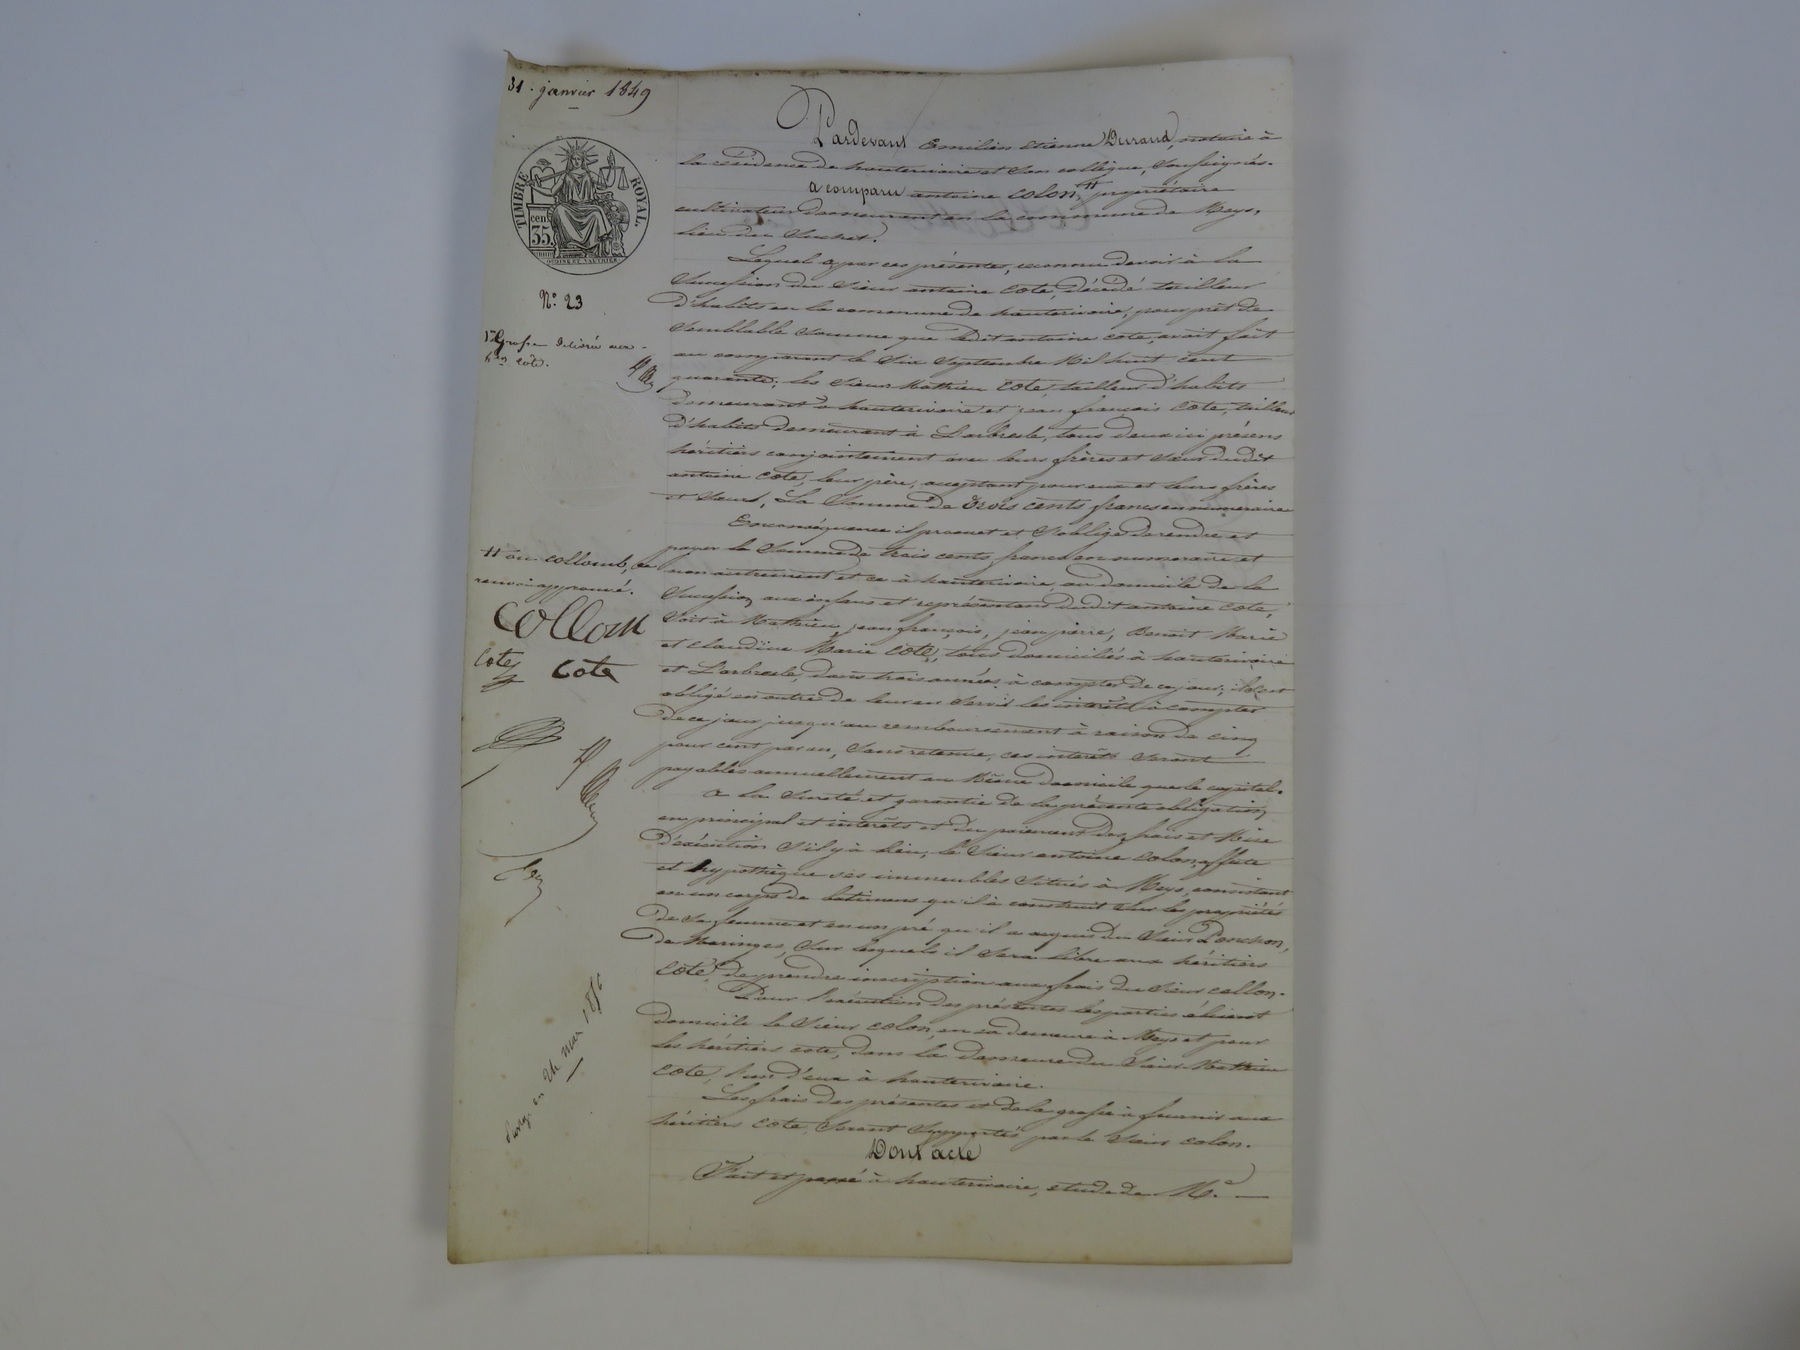 31 janvier 1849
TIMBRE ROYAL
cen.
35
N° 23
1re Grosse délivrée aux
hers cote.
Pardevant Emilien Etienne Durand, notaire à
la résidence de hauterivoire et son collègue, soussignés.
a comparu antoine colon, # propriétaire
cultivateur demeurant en la commune de Meys,
lieu du Suchet.
Lequel a par ces présentes, reconnu devoir à la
succession du sieur antoine Cote, décédé tailleur
d'habits en la commune de hauterivoire, pour prêt de
semblable somme que ledit antoine cote, avait fait
au comparant le six septembre Mil huit cent
quarante; les sieurs Mathieu Cote, tailleur d'habits
demeurant à hauterivoire et jean françois Cote, tailleur
d'habits demeurant à L'arbresle, tous deux ici présens
héritiers conjointement avec leurs frères et sœur dudit
antoine Cote, leur père, acceptant pour eux et leurs frères
et sœur, La Somme de trois cents francs en numéraire
En conséquence il promet et s'oblige de rendre et
payer la somme de trois cents francs en numeraire et
non autrement et ce à hauterivoire au domicile de la
succession aux enfans et représentans dudit antoine Cote,
soit à Mathieu, jean françois, jean pierre, Benoit Marie
et claudine Marie Côte, tous domiciliés à hauterivoire
et L'arbresle, dans trois années à compter de ce jour; il s'est
obligé en outre de leur en servir les intérêts à compter
de ce jour jusqu'au remboursement à raison de cinq
pour cent par an, sans retenue, ces intérêts seront
payables annuellement au Même domicile que le capital.
a la sureté et garantie de la présente obligation,
en principal et intérêts et du paiement des frais et Mise
d'exécution s'il y à lieu, le sieur antoine Colon, affecte
et hypothèque ses immeubles situés à Meys, consistant
en un corps de batimens qu'il à construit sur les propriétés
de sa femme et en un pré qu'il a acquis du sieur Ponchon,
de Maringes, sur lesquels il sera libre aux héritiers
Côte, de prendre inscription aux frais du sieur collon.
Pour l'exécution des présentes les parties élisent
domicile le sieur colon, en sa demeure à Meys et pour
les héritiers cote, dans la demeure du sieur Mathieu
Cote, l'un d'eux à hauterivoire.
Les frais des présentes et de la grosse à fournir aux
héritiers cote, seront supportés par le sieur colon.
Dont acte
Fait et passé à hauterivoire, etude de Me.
# ou collomb, ce
renvoi approuvé.
Collom
Cote Cote